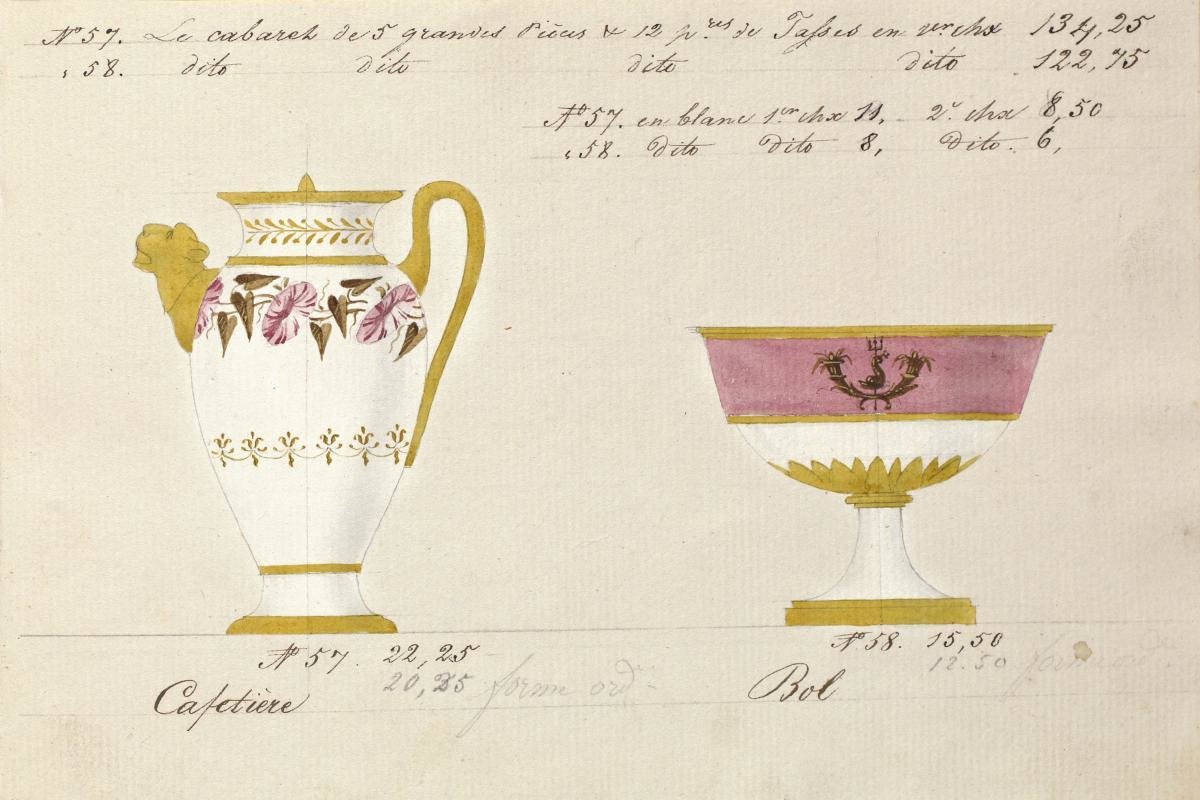 Nº 57. Le cabaret de 5 grandes Pièces & 12 p.res de Tasses en 1er chx 134,25
" 58. dito dito dito dito 122,75
Nº 57. en blanc 1er chx 11, 2e chx 8,50
" 58. dito dito 8, dito. 6,
Nº 57. 22,25
20,25 forme ord.re
Cafetière
Nº 58. 15,50
12.50 forme ord.re
Bol